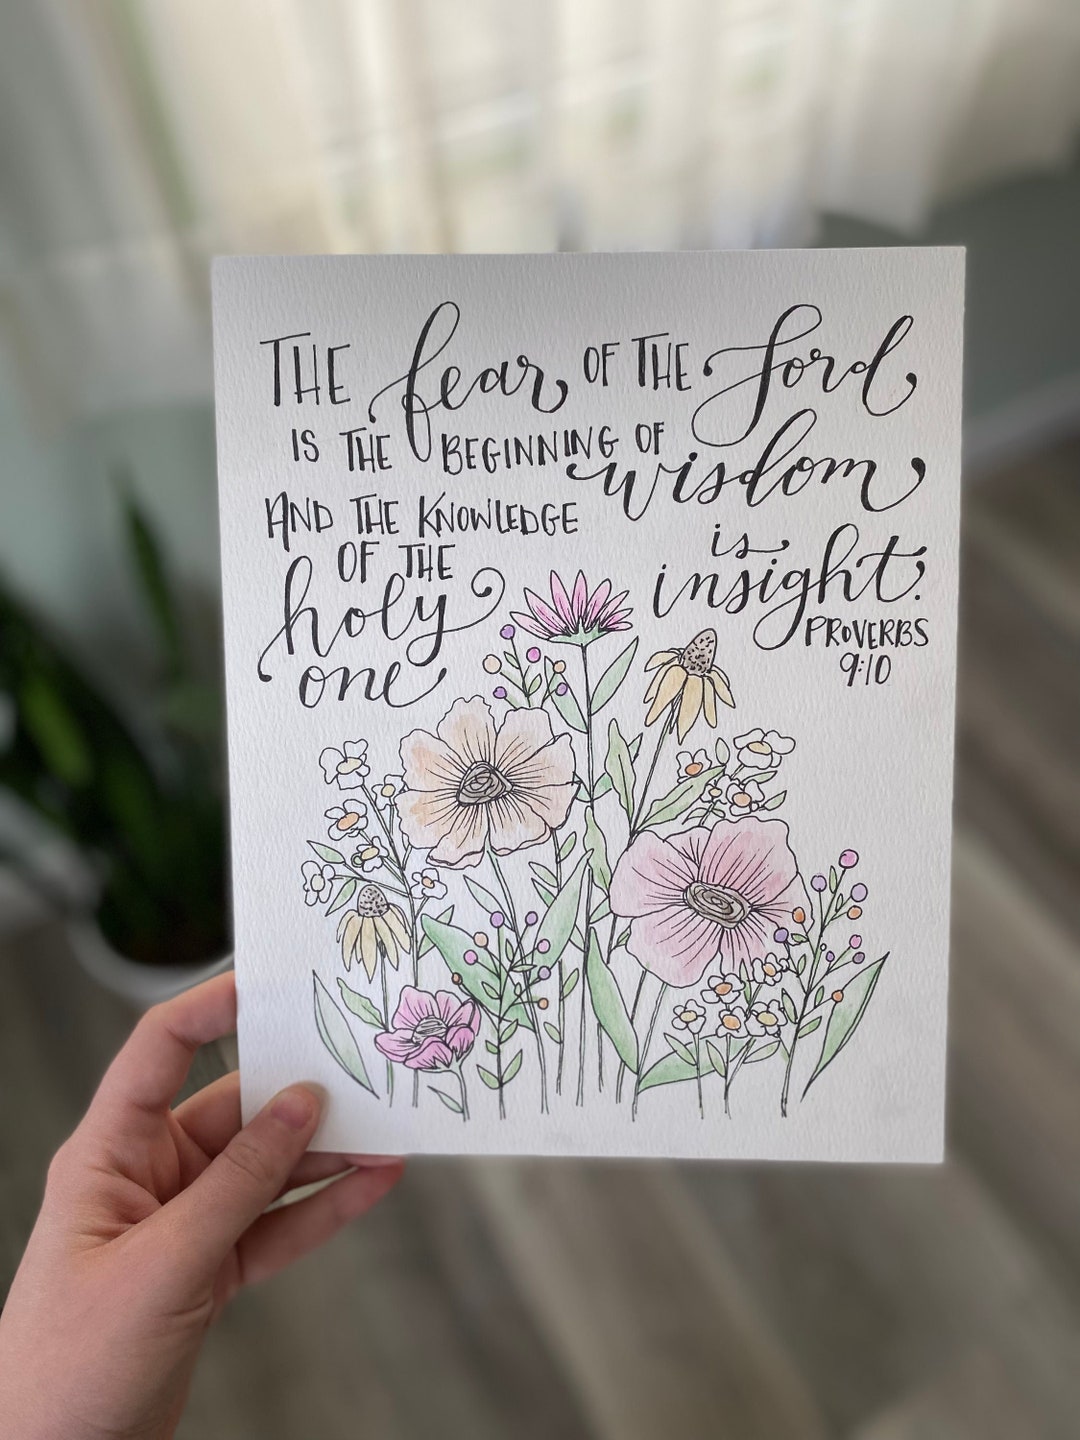 THE fear OF THE Lord
IS THE BEGINNING OF
wisdom
AND THE KNOWLEDGE
OF THE
holy
one
is
insight.
PROVERBS
9:10